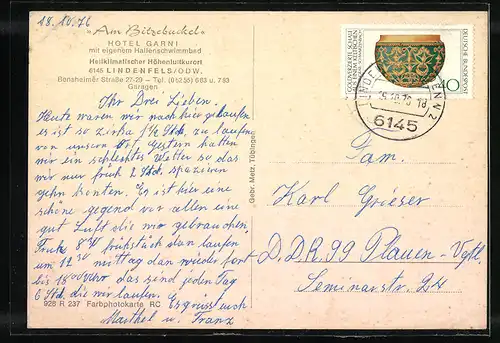 18.10.76
»Am Bitzebuckel«
HOTEL GARNI
mit eigenem Hallenschwimmbad
Heilklimatischer Höhenluftkurort
6145 LINDENFELS/ODW.
Bensheimer Straße 27-29 – Tel. (06255) 663 u. 783
Garagen
Ihr Drei Lieben.
Heute waren mir nach hier gelaufen
es ist so zirka 1½ Std. zu laufen
von unsern Ort. Gestern hatten
mir ein schlechtes Wetter so das
wir nur früh 2 Std. spazieren
gehn konten. Es ist hier eine
schöne gegend vor allen eine
gut Luft die mir gebrauchen,
Früh 8 30 frühstück dan laufen
um 12 30 mittag dan wieder fort
bis 18 00 Uhr das sind jeden Tag
6 Std. die mir laufen. Es grüsst euch
Marthel u. Franz
928 R 237 Farbphotokarte RC
Gebr. Metz, Tübingen
GOLDVERZIERTE SCHALE
DEUTSCHE BUNDESPOST
40
18
6145
Fam.
Karl Grieser
D.D.R. 99 Plauen-Vgtl.
Seminarstr. 24